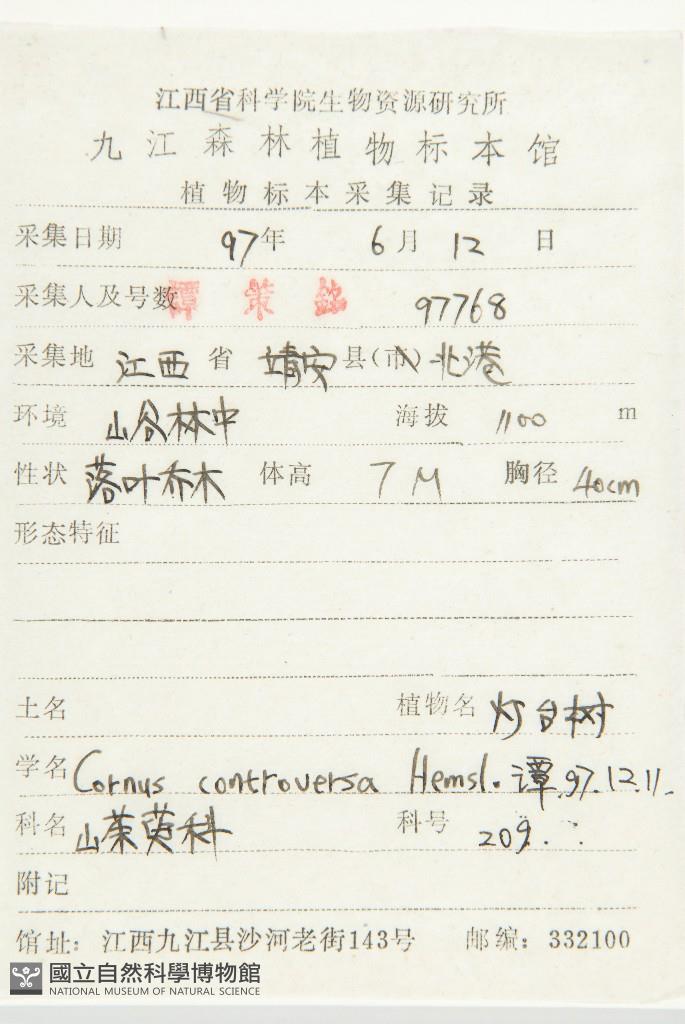 江西省科学院生物资源研究所
九江森林植物标本馆
植物标本采集记录
采集日期 97年 6月 12 日
采集人及号数 譚策銘 97768
采集地 江西 省 靖安 县(市) 北港
环境 山谷林中 海拔 1100 m
性状 落叶乔木 体高 7M 胸径 40cm
形态特征
土名 植物名 灯台树
学名 Cornus controversa Hemsl. 谭.97.12.11.
科名 山茱萸科 科号 209.
附记
馆址：江西九江县沙河老街143号 邮编：332100
國立自然科學博物館
NATIONAL MUSEUM OF NATURAL SCIENCE